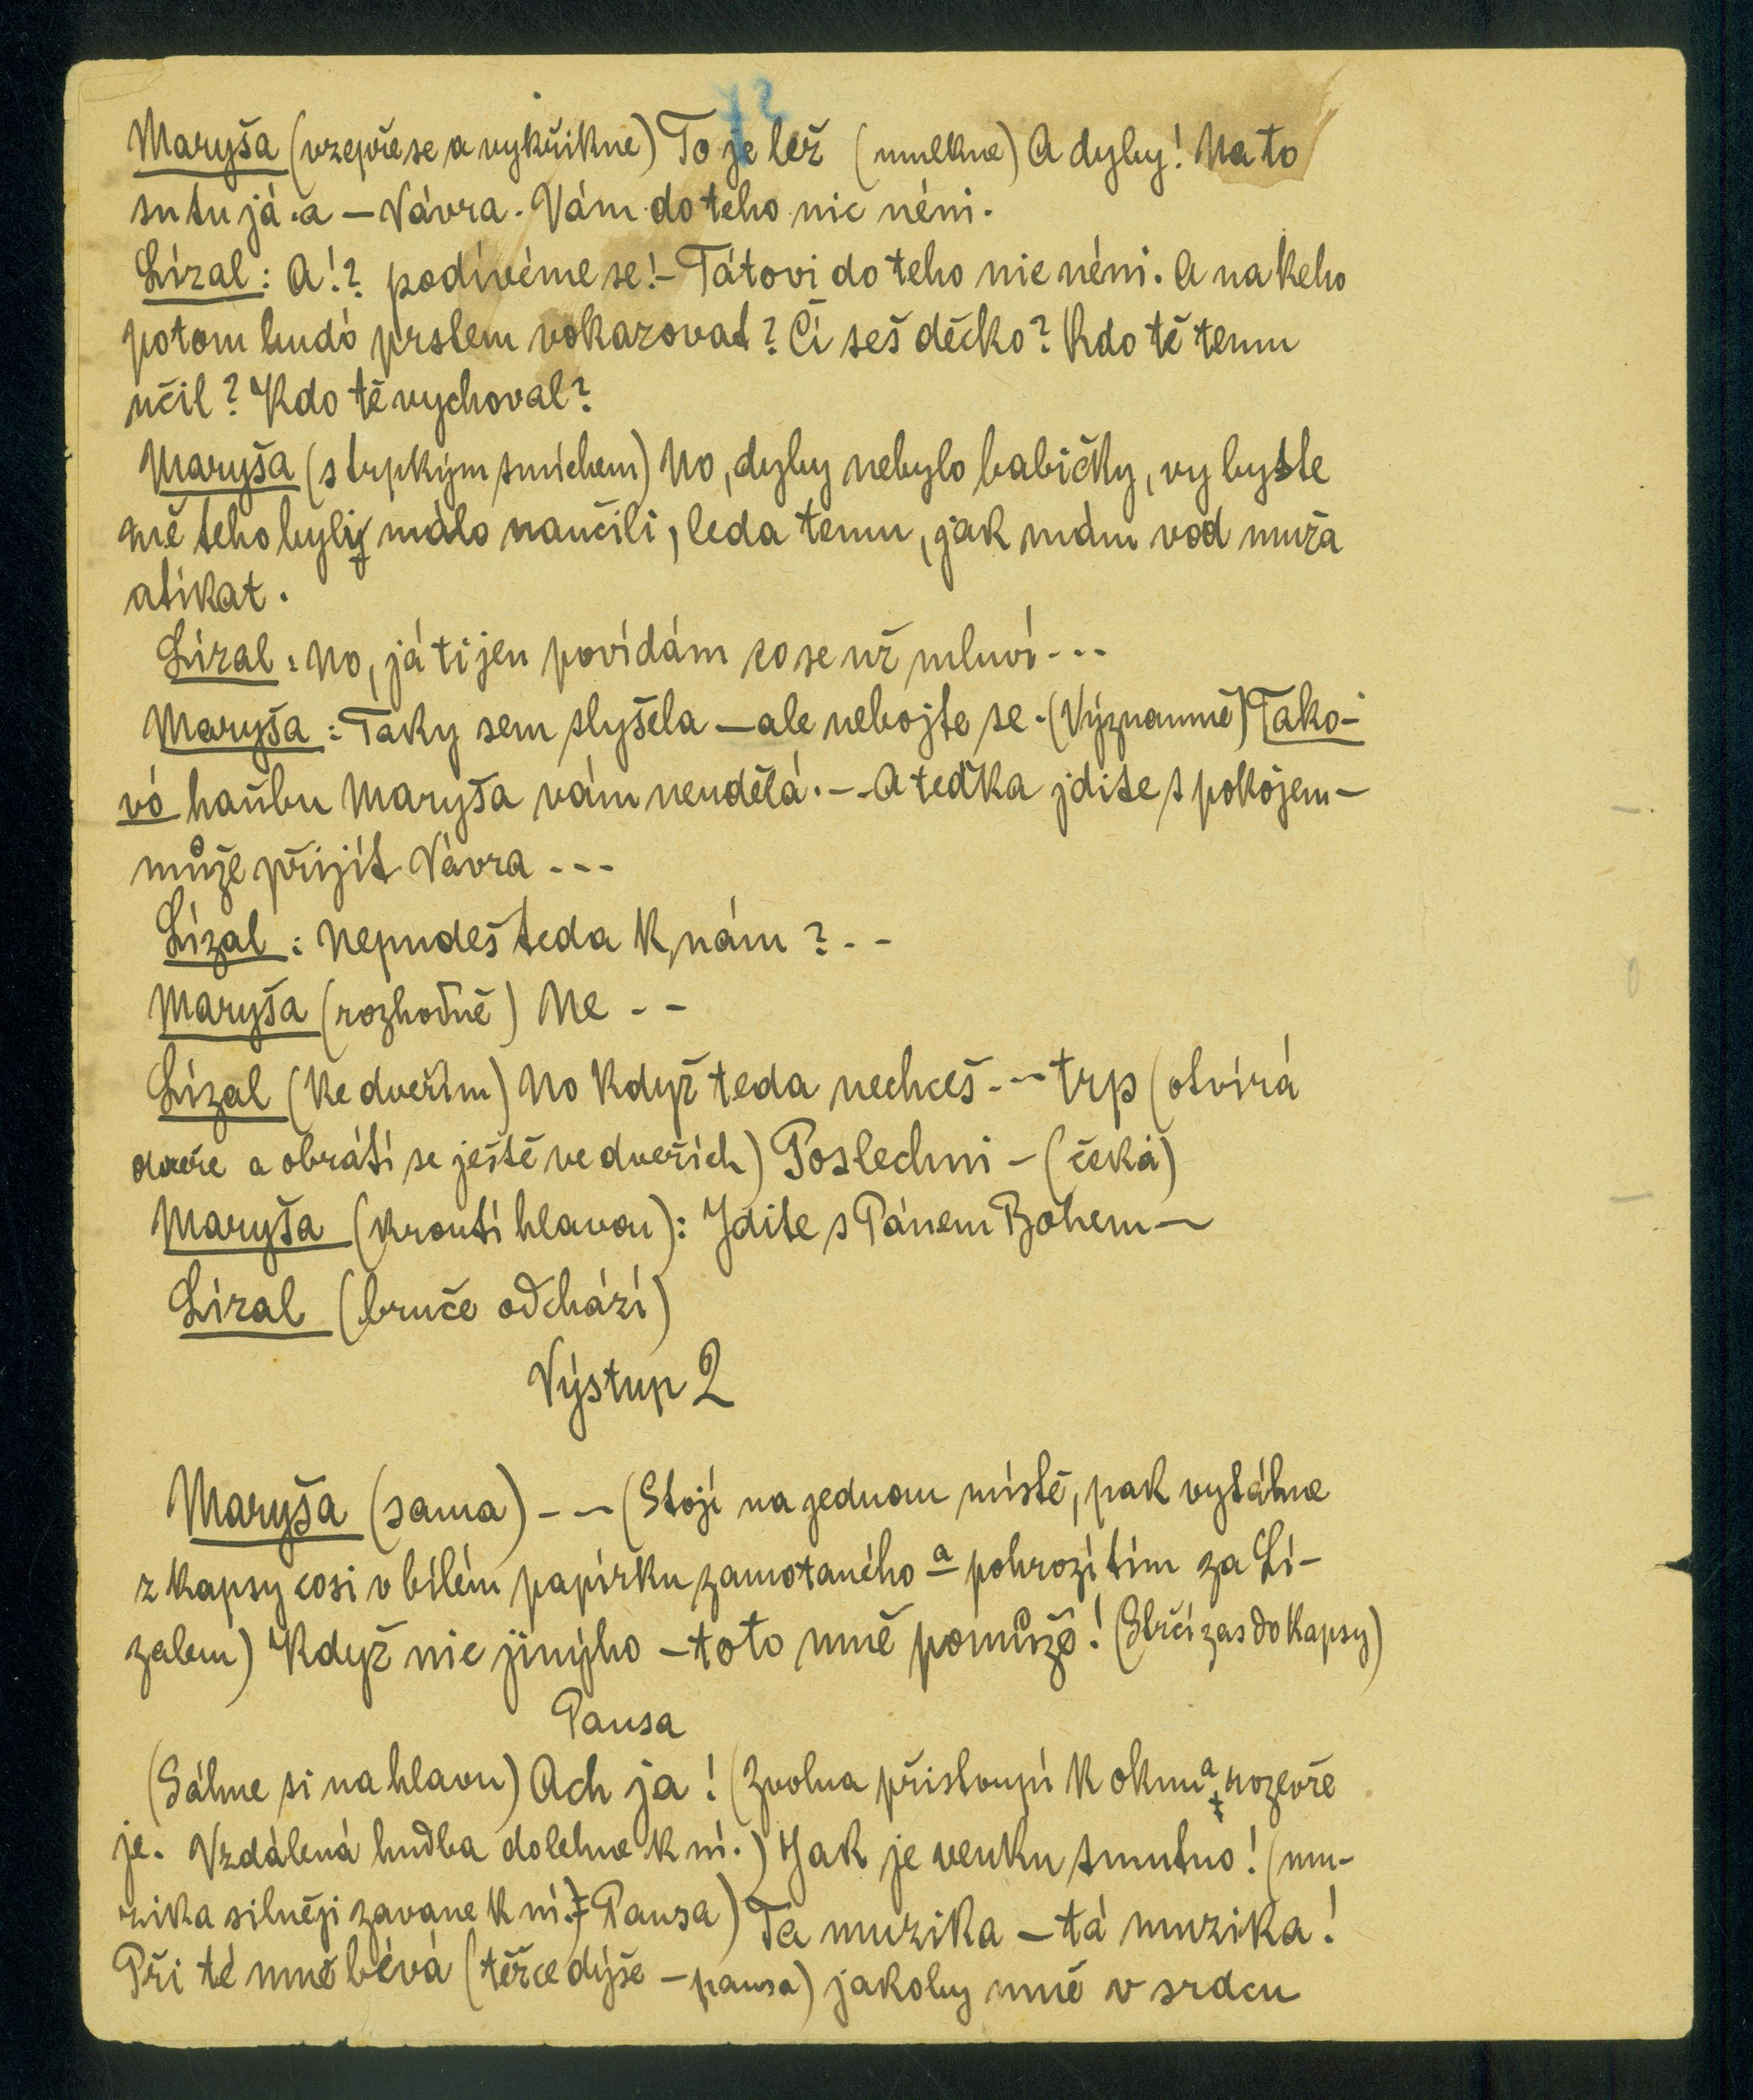 72
Maryša (vzepře se a vykřikne) To je lež (umlkne) A dyby! Na to
su tu já a – Vávra. Vám do teho nic néni.
Lízal: A!? podívéme se! – Tátovi do teho nic néni. A na keho
potom budó prstem vokazovat? Čí seš děcko? Kdo tě temu
učil? Kdo tě vychoval?
Maryša (s trpkým smíchem) No, dyby nebylo babičky, vy byste
mě teho byli málo naučili, leda temu, jak mám vod muža
utíkat.
Lízal: No, já ti jen povídám co se už mluví---
Maryša: Taky sem slyšela – ale nebojte se. (Významně) Tako-
vó haňbu Maryša vám neudělá. -- A tedka jdite s pokójem –
může přijít Vávra ---
Lízal: Nepudeš teda k nám? --
Maryša (rozhodně) Ne --
Lízal (ke dveřím) No když teda nechceš --- trp (otvírá
dveře a obrátí se ještě ve dveřích) Poslechni – (čeká)
Maryša (kroutí hlavou): Jdite s Pánem Bohem –
Lízal (bruče odchází)
Výstup 2
Maryša (sama) --- (Stojí na jednom místě, pak vytáhne
z kapsy cosi v bílém papírku zamotaného a pohrozí tím za Lí-
zalem) Když nic jinýho – toto mně pomůže! (Strčí zas do kapsy)
Pausa
(Sáhne si na hlavu) Ach ja! (Zvolna přistoupí k oknu a rozevře
je. Vzdálená hudba dolehne k ní.) Jak je venku smutno! (mu-
zika silněji zavane k ní. Pausa) Ta muzika – tá muzika!
Při té mně bévá (těžce dýše – pausa) jakoby mně v srdcu